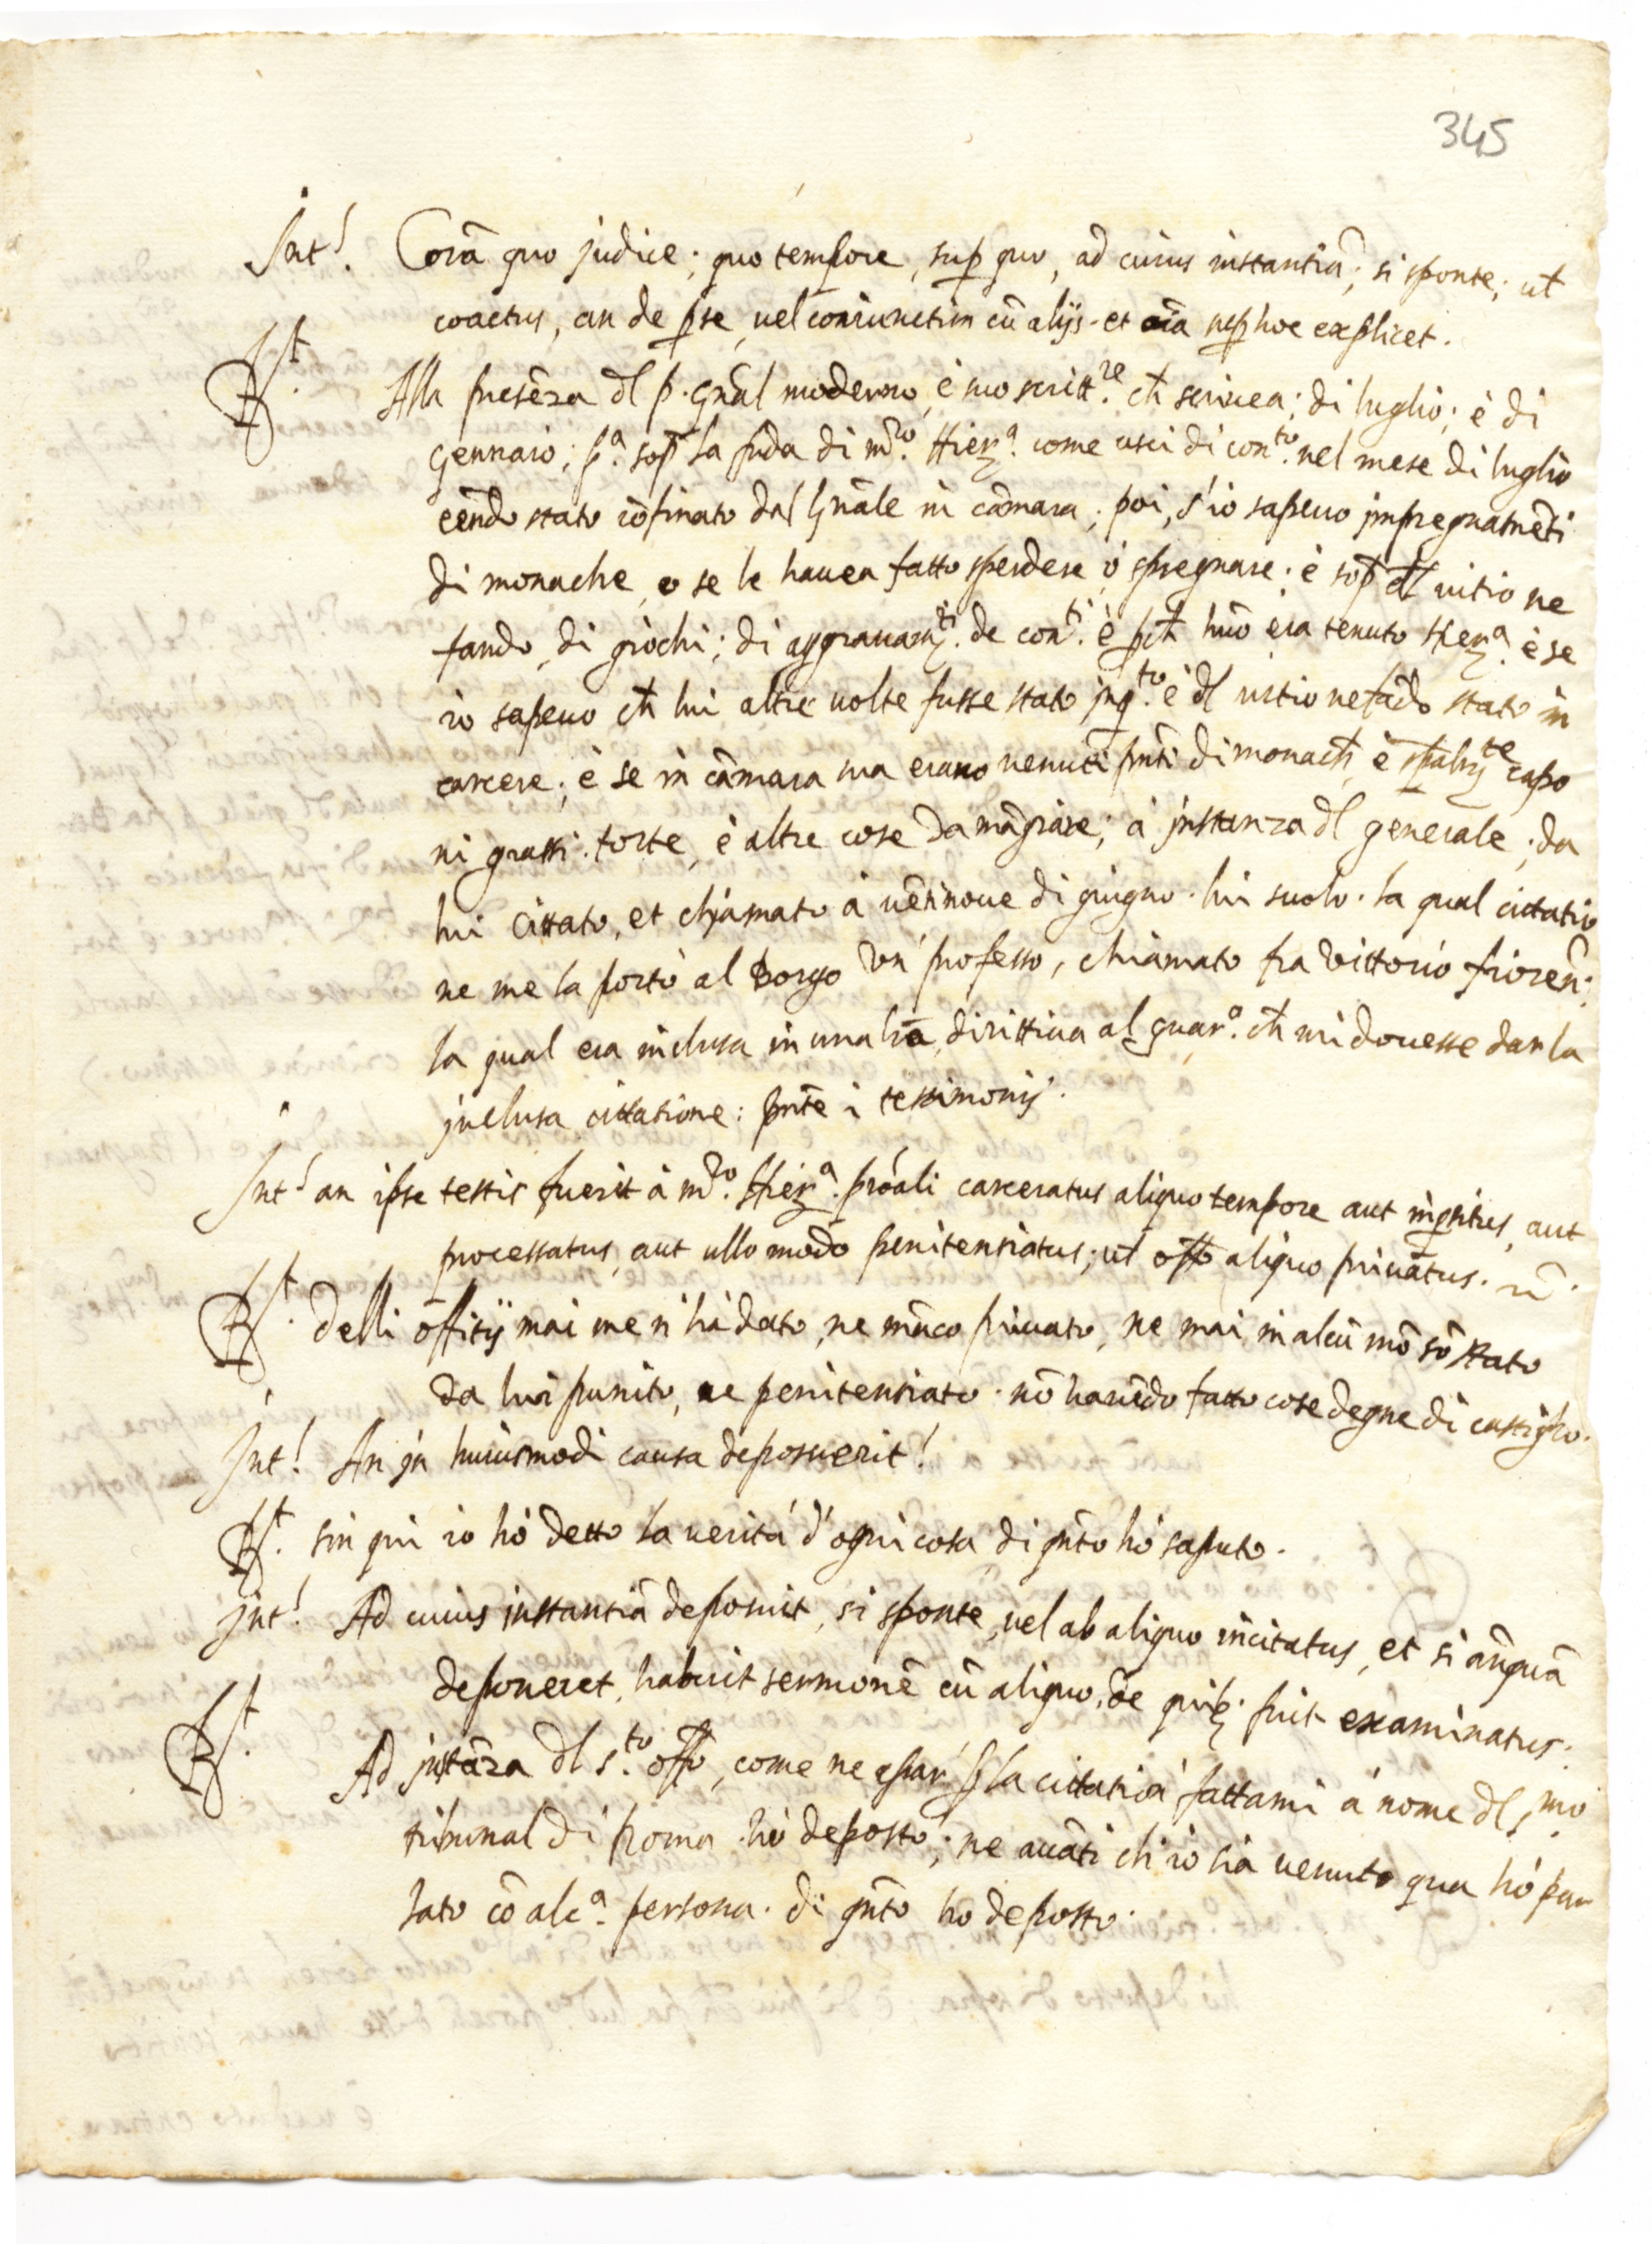 345
Int! Corã quo judice; quo tempore, sup quo, ad cuius instantiã; si sponte; ut
coactus, an de p se, uel coniunctim cũ alijs. et oĩa sup hoc explicet.
Rt. Alla presẽza dl p. Gnãl moderno, è suo scritt.re ch scriuea; di luglio; è di
Gennaio; p.a sop la fuda di m.ro Hier.a come usci di con.to nel mese di luglio
eẽndo stato cõfinato dal Gnãle in cãmara; poi, s'io sapeuo jmpregnatmẽti
di monache, o se le hauea fatto sperdere, ò spregnare; è sop dl uitio ne
fando, di giochi; di aggrauam.ti de con.ti è pch huõ era tenuto Hier.a è se
io sapeuo ch lui altre uolte fusse stato jnq.to è dl uitio nefãdo stato in
carcere; è se in cãmara sua erano uenuti pnti di monach, è capo
ni grassi. torte, è altre cose da mãgiare; à jnstanza dl generale; da
lui cittato, et chiamato à uẽtinoue di giugno. lui suolo. la qual cictatio
ne me la portò al Borgo un' professo, chiamato fra Vittorio fiorẽn:
la qual era inclusa in una lrã, dirittiua al guar.o ch mi douesse dar la
jnclusa cittatione: pnte i testimonij.
Int! an ipse testis fuerit à m.ro Hier.a proãli carceratus aliquo tempore aut inqsitus, aut
processatus, aut ullo modo penitentiatus; ut offo aliquo priuatus.
Rt. delli offitij mai me n'hà dato, ne mãco priuato, ne mai in alcũ mõ sõ stato
da lui punito, ne penitentiato. nõ hauẽdo fatto cose degne di castigho.
Int! An jn huiusmodi causa deposuerit!
Rt. sin qui io hò detto la ueritá d'ogni cosa di qnto hò saputo.
jnt! Ad cuius jnstantiã deposuit, si sponte, uel ab aliquo incitatus, et si ãnquã
deponeret, habuit sermonẽ cũ aliquo, de quib; fuit examinatus.
Rt. Ad jnstãza dl s.to offo, come ne apar' p la cictation' fattami à nome dl s.mo
tribunal di Roma. hò deposto; ne auãti ch io sia uenuto qua hò par
lato cõ alc.a persona. di qnto ho deposto.